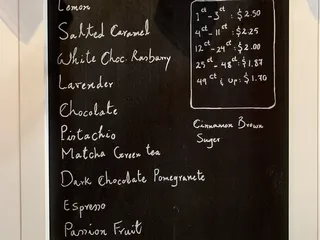 Lemon
Salted Caramel
White Choc. Rasbarry
Lavender
Chocolate
Pistachio
Matcha Green tea
Dark Chocolate Pomegranete
Espresso
Passion Fruit
1ct - 3ct : $2.50
4ct - 11ct : $2.25
12ct - 24ct : $2.00
25ct - 48ct : $1.87
49ct & up : $1.70
Cinnamon Brown
Suger